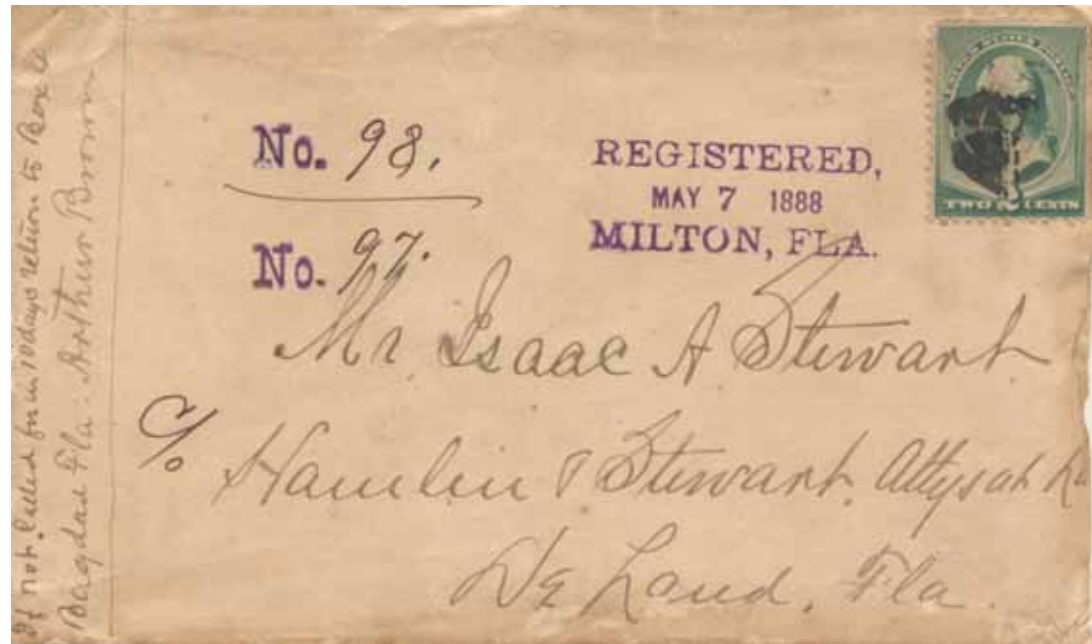 If not called for in 10 days return to Box
Bagdad Fla. Arthur Brown
No. 98.
No. 97.
REGISTERED,
MAY 7 1888
MILTON, FLA.
TWO CENTS
Mr. Isaac A Stewart
C/o
Hamlin & Stewart. Attys at
De Land, Fla.